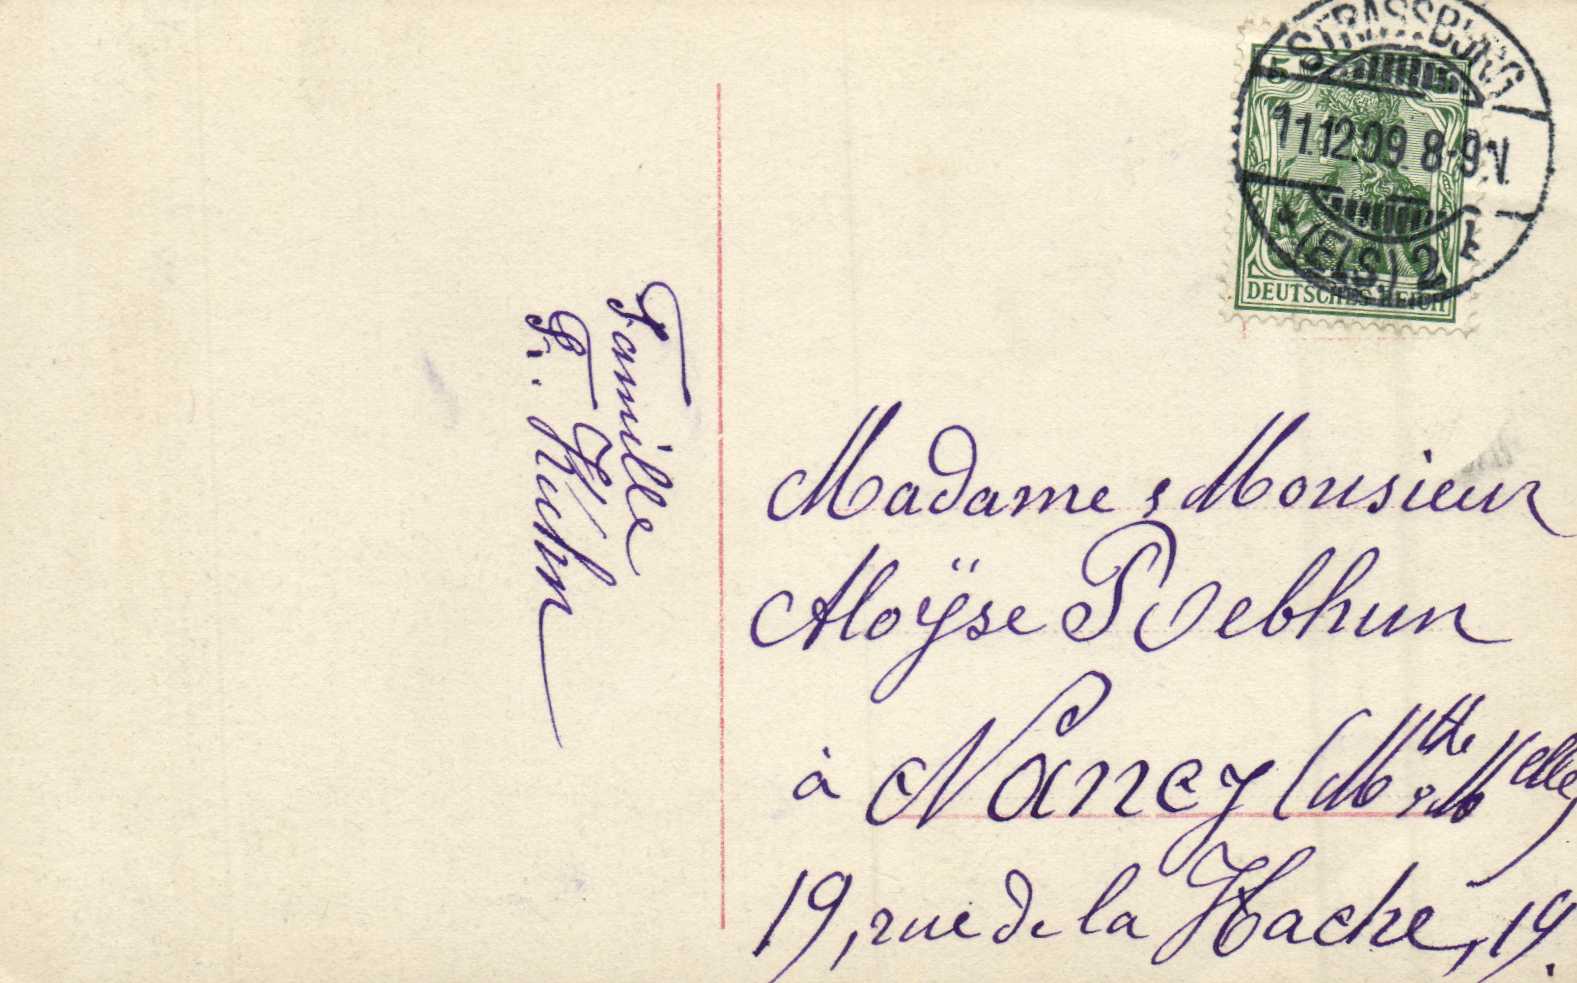 STRASSBURG
11.12.09. 8-9.V.
* (ELS.) 2 k
5
DEUTSCHES REICH
Famille
Kuhn
Madame & Monsieur
Aloÿse Rebhun
à Nancy (Mthe & Mlle)
19, rue de la Hache, 19.